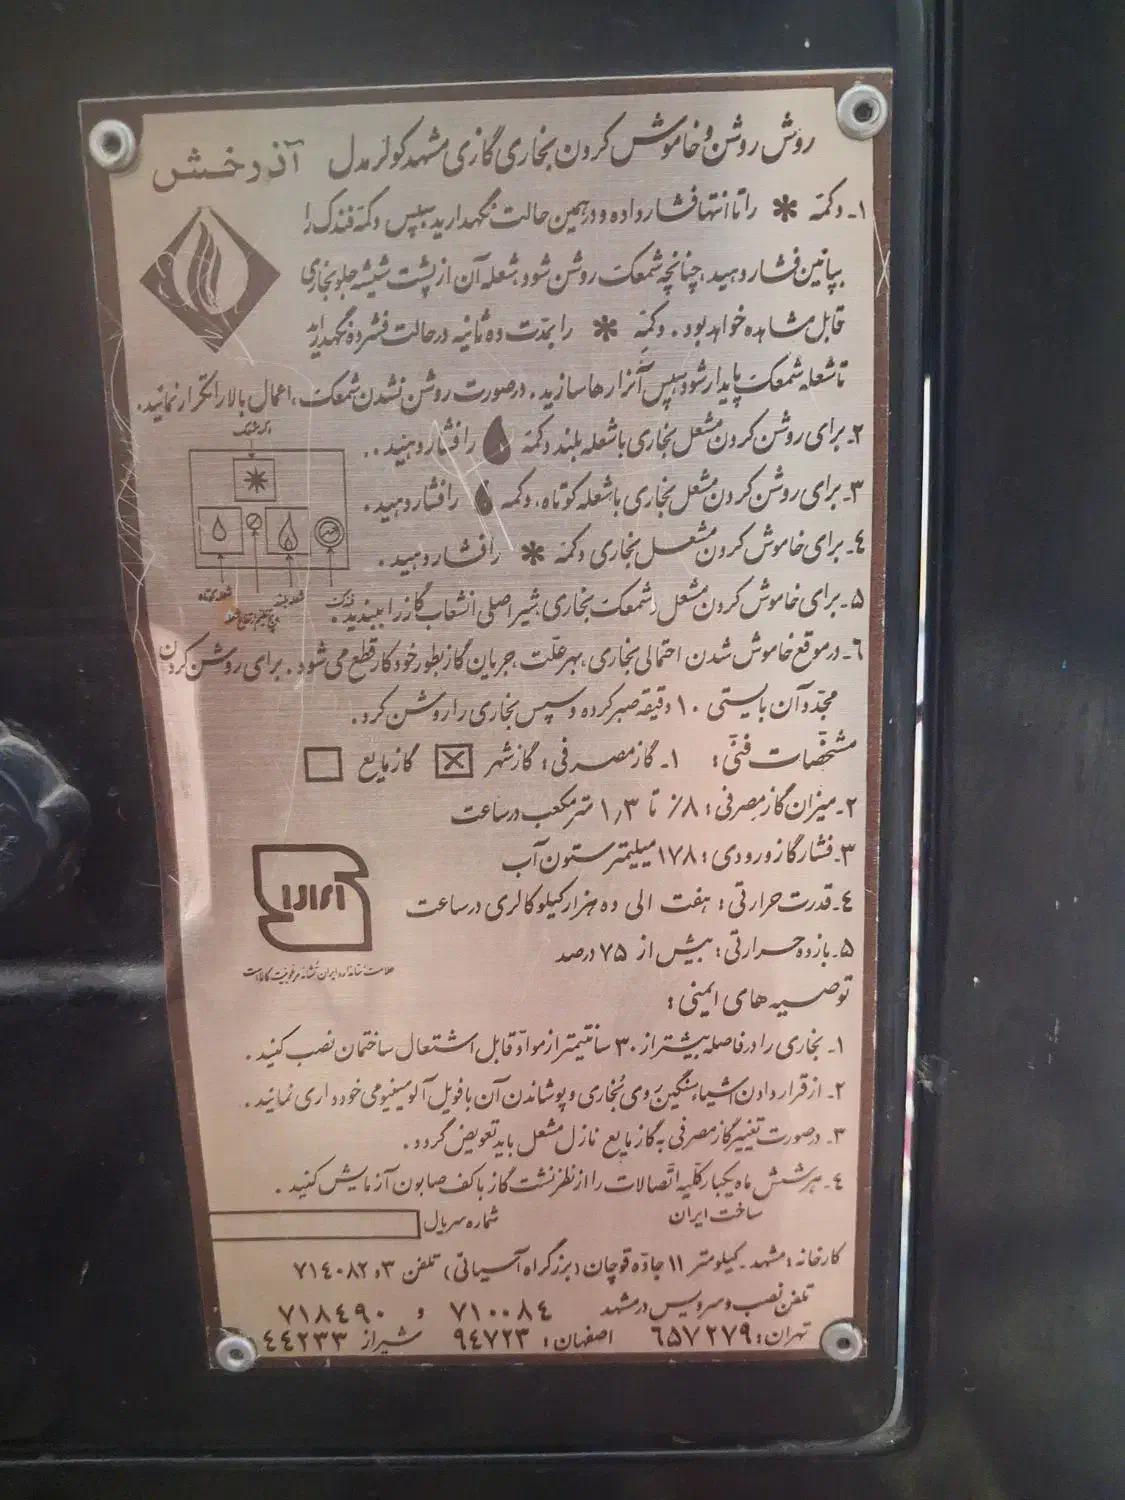 روش روشن و خاموش کردن بخاری گازی مشهد کولر مدل آذرخش
۱ـ دکمه * را تا انتها فشار داده و در همین حالت نگهدارید سپس دکمه فندک را
بپائین فشار دهید، چنانچه شمعک روشن شود، شعله آن از پشت شیشه جلو بخاری
قابل مشاهده خواهد بود. دکمه * را بمدت ده ثانیه در حالت فشرده نگهدارید
تا شعله شمعک پایدار شود سپس آنرا رها سازید. در صورت روشن نشدن شمعک، اعمال بالا را تکرار نمائید.
۲ـ برای روشن کردن مشعل بخاری با شعله بلند دکمه را فشار دهید..
۳ـ برای روشن کردن مشعل بخاری با شعله کوتاه، دکمه را فشار دهید.
۴ـ برای خاموش کردن مشعل بخاری دکمه * را فشار دهید.
شعله کوتاه
شعله بلند
فندک
۵ـ برای خاموش کردن مشعل و شمعک بخاری، شیر اصلی انشعاب گاز را ببندید.
۶ـ در موقع خاموش شدن احتمالی بخاری، بهر علت، جریان گاز بطور خودکار قطع می شود. برای روشن کردن
مجدد آن بایستی ۱۰ دقیقه صبر کرده و سپس بخاری را روشن کرد.
مشخصات فنی: ۱ـ گاز مصرفی: گاز شهر ☒ گاز مایع ☐
۲ـ میزان گاز مصرفی: ۰/۸ تا ۱٫۳ متر مکعب در ساعت
۳ـ فشار گاز ورودی: ۱۷۸ میلیمتر ستون آب
۴ـ قدرت حرارتی: هفت الی ده هزار کیلو کالری در ساعت
۵ـ بازده حرارتی: بیش از ۷۵ درصد
علامت استاندارد ایران نشانه مرغوبیت کالاست
توصیه های ایمنی:
۱ـ بخاری را در فاصله بیشتر از ۳۰ سانتیمتر از مواد قابل اشتعال ساختمان نصب کنید.
۲ـ از قرار دادن اشیاء سنگین بروی بخاری و پوشاندن آن با فویل آلومینیومی خودداری نمائید.
۳ـ در صورت تغییر گاز مصرفی به گاز مایع نازل مشعل باید تعویض گردد.
۴ـ هر شش ماه یکبار کلیه اتصالات را از نظر نشت گاز با کف صابون آزمایش کنید.
ساخت ایران شماره سریال
کارخانه: مشهد ـ کیلومتر ۱۱ جاده قوچان (بزرگراه آسیائی) تلفن ۳ و ۷۱۴۰۸۲
تلفن نصب و سرویس در مشهد ۷۱۰۰۸۴ و ۷۱۸۴۹۰
تهران: ۶۵۷۲۷۹ اصفهان: ۹۴۷۲۳ شیراز ۴۴۲۳۳